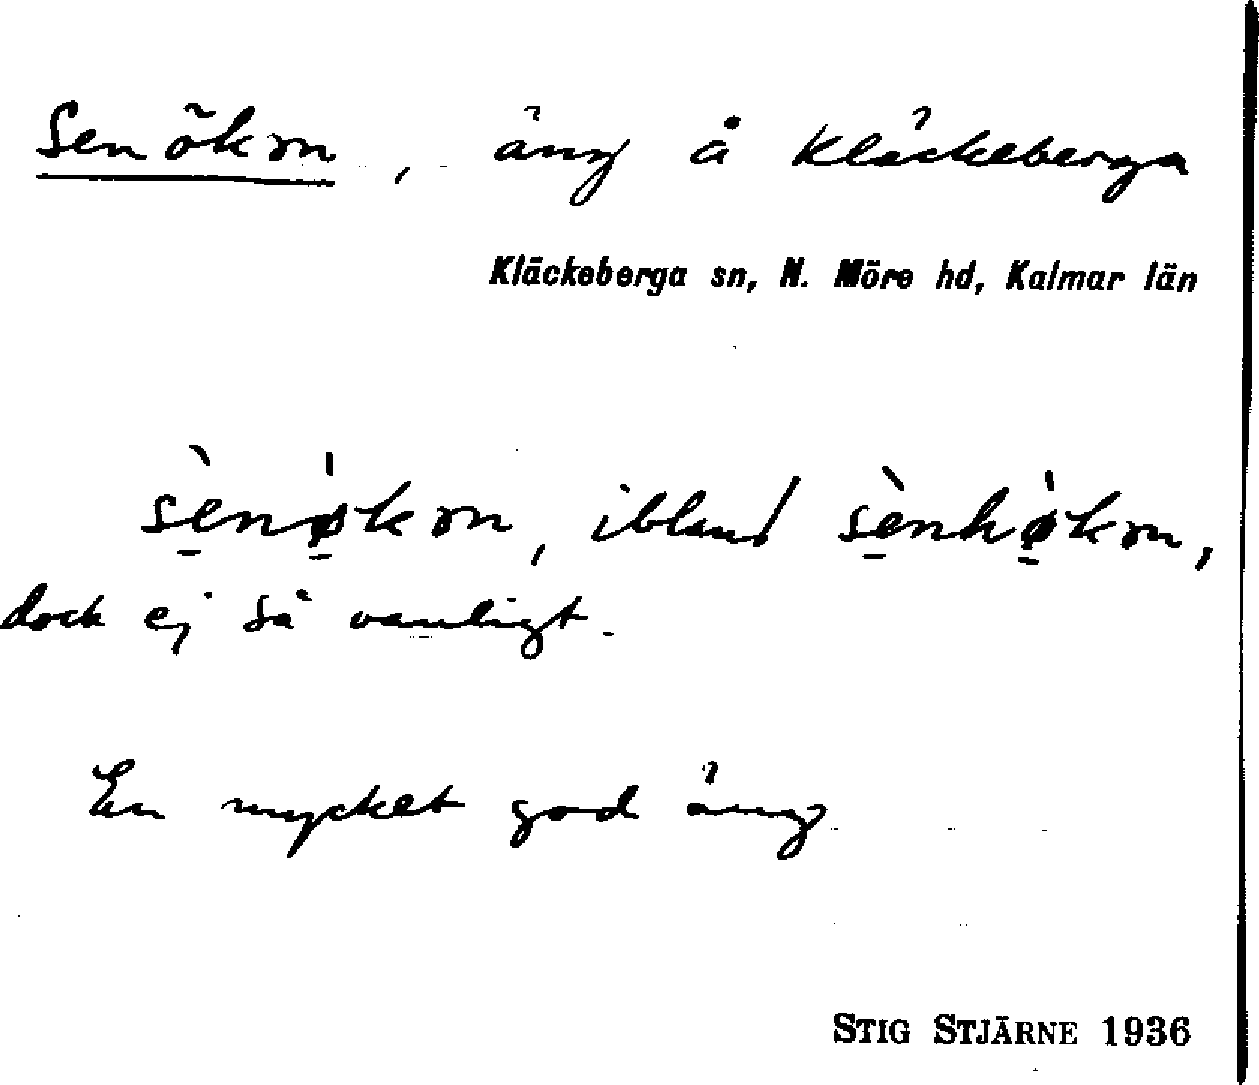 Senökon, äng å Kläckeberga
Kläckeberga sn, N. Möre hd, Kalmar län
sè̠nø̠̍kon, ibland sè̠nhø̠̍kon,
dock ej så vanligt.
En mycket god äng
STIG STJÄRNE 1936